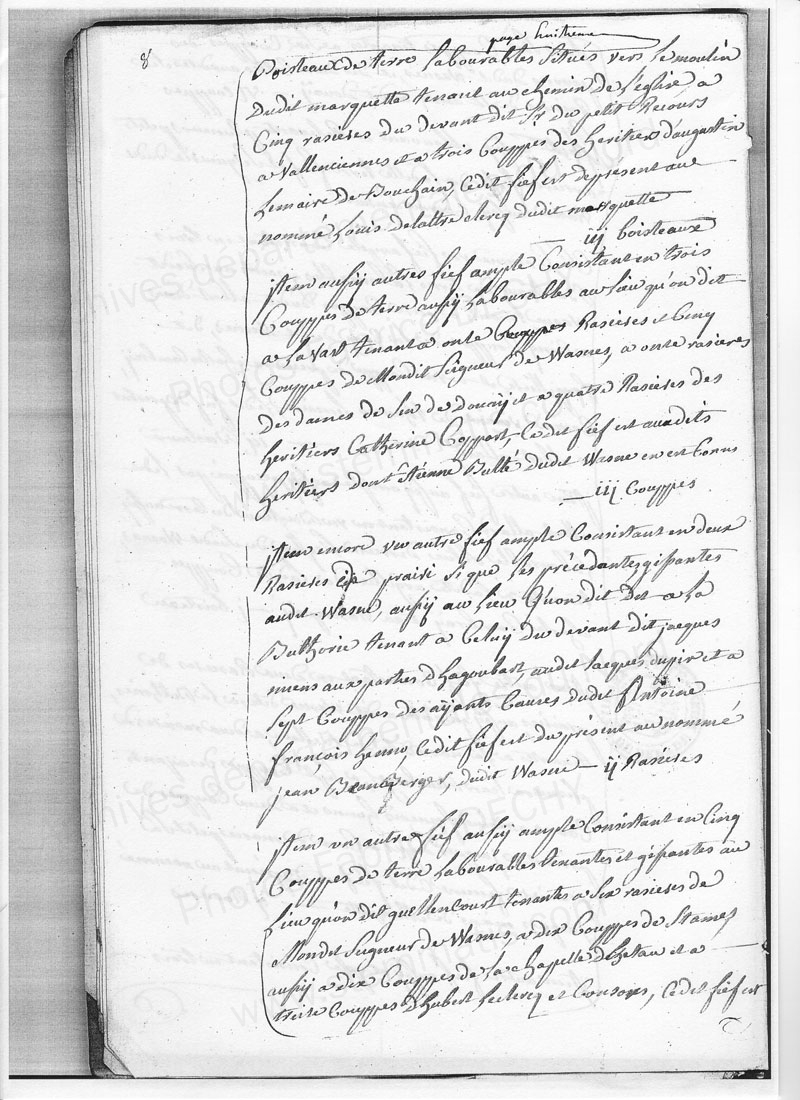 8
page huitieme
Boisteaux de terre labourables situés vers le moulin
dudit marquette tenant au chemin de l'eglise, a
Cinq rasieres du devant dit Sr du petit Recours
a Vallenciennes et a trois Couppes des heritiers d'augustin
Lemaire de Bouchain, Cedit fief est depresent au
nommé Louis delattre clercq dudit marquette
iij boisteaux
jtem aussÿ autres fief ample Consistant en trois
Couppes de terre aussÿ labourables au lieu qu'on dit
a la Vast tenant a onte Rasieres et Cinq
Couppes de Mondit Seigneur de Wasnes, a onte rasieres
des dames de Sin de Douaÿ et a quatre Rasieres des
heritiers Catherine Coppart, Cedit fief est auxdits
heritiers dont Etienne Bulté dudit Wasne en est Connu
iij Couppes
jtem encore vn autre fief ample Consistant en deux
Rasieres de prairi si que les précédantes gissantes
audit Wasne, aussÿ au lieu Qu'on dit a la
Buthorie tenant a Celuÿ du devant dit jacques
miens aux parties d'hagoubart, audit Jacques dupir et a
sept Couppes des aÿants Causes dudit Antoine
françois henno, Cedit fief est du présent au nommé
jean Berger, dudit Wasne ij Rasieres
jtem vn autre fief aussÿ ample Consistant en Cinq
Couppes de terre labourables tenantes et gissantes au
Lieu qu'on dit guellencourt tenantes a six rasieres de
Mondit Seigneur de Wasnes, a dix Couppes de
aussÿ a dix Couppes de la Chapelle et a
treise Couppes d'hubert Leclercq et Consors, Cedit fief est